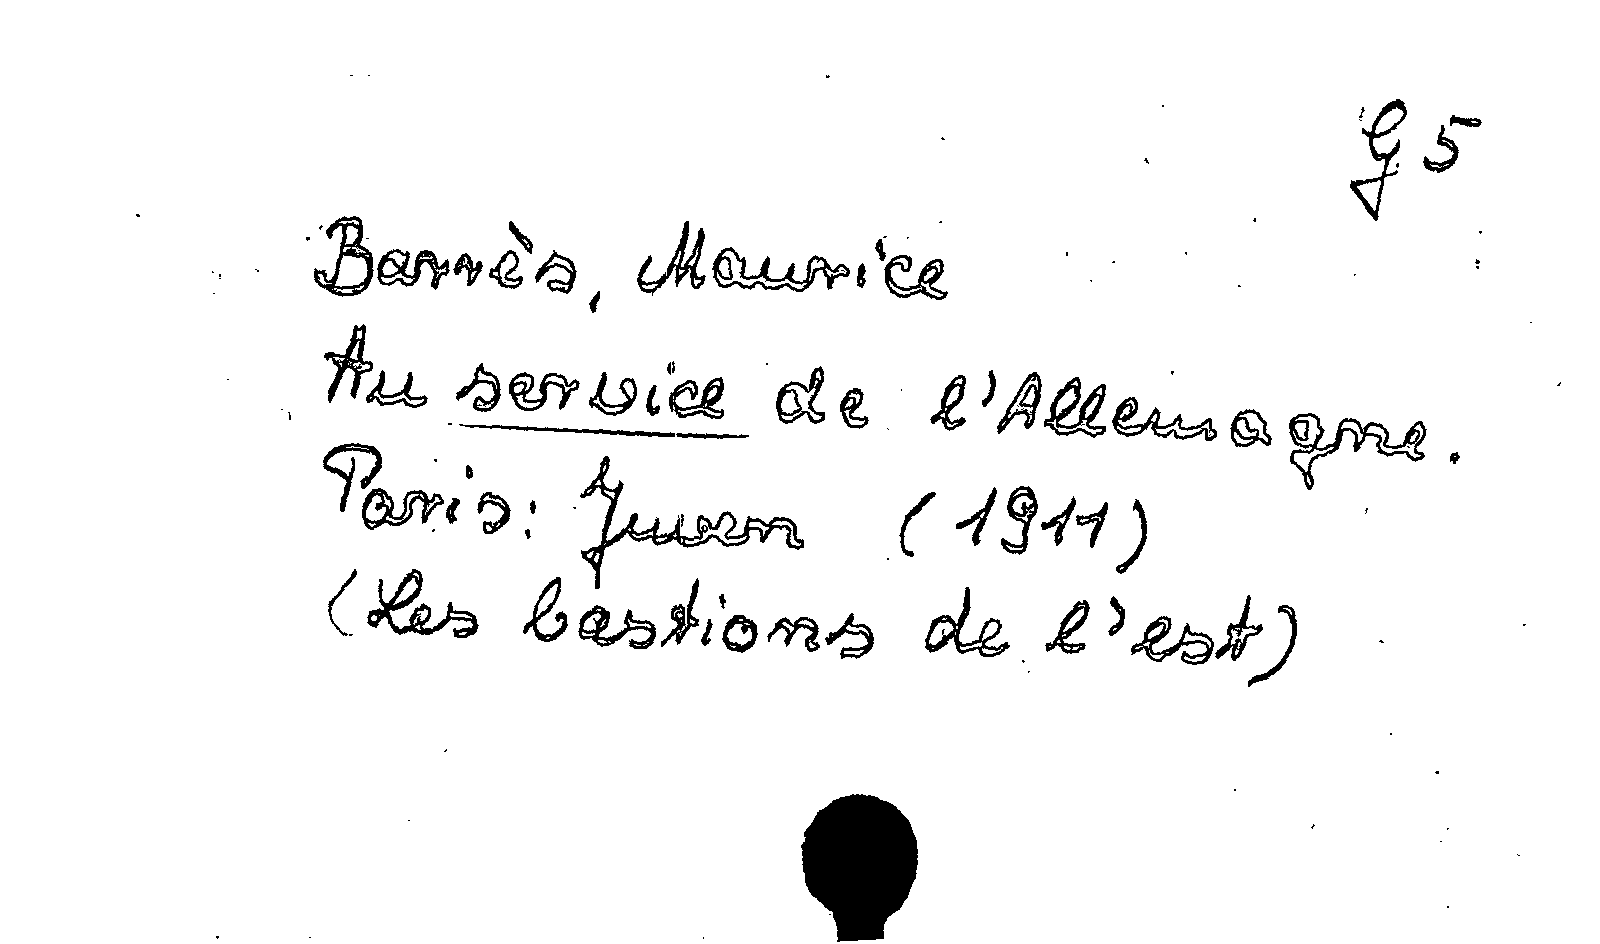 G 5
Barrès, Maurice
Au service de l'Allemagne.
Paris: Juven (1911)
(Les bastions de l'est)